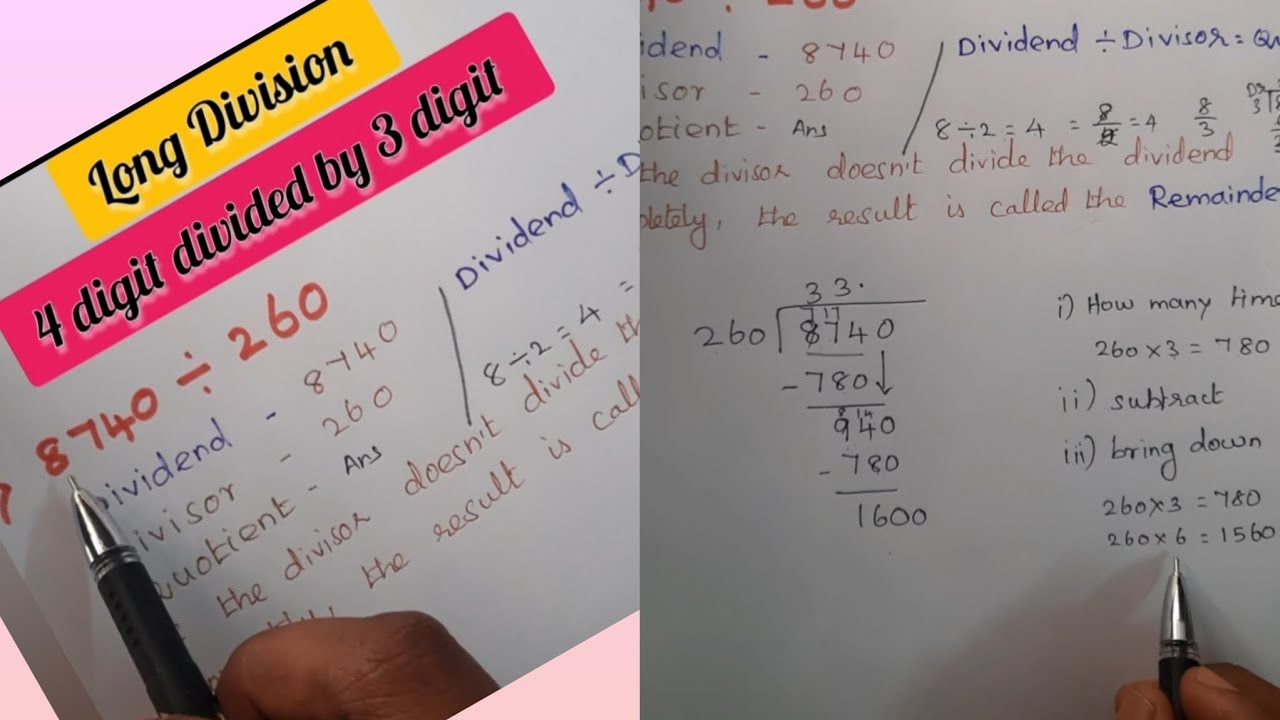 Long Division
4 digit divided by 3 digit
8740 ÷ 260
Dividend - 8740
ivisor - 260
Quotient - Ans
Dividend ÷ D
8÷2 = 4 =
the divisor doesn't divide th
the result is call
idend - 8740
isor - 260
otient - Ans
Dividend ÷ Divisor = Qu
8÷2 = 4 = 8/2 = 4 8/3
the divisor doesn't divide the dividend
pletely, the result is called the Remainde
33.
260 8740
7 17
- 780
940
8 14
- 780
1600
i) How many time
260×3 = 780
ii) subtract
iii) bring down
260×3 = 780
260×6 = 1560